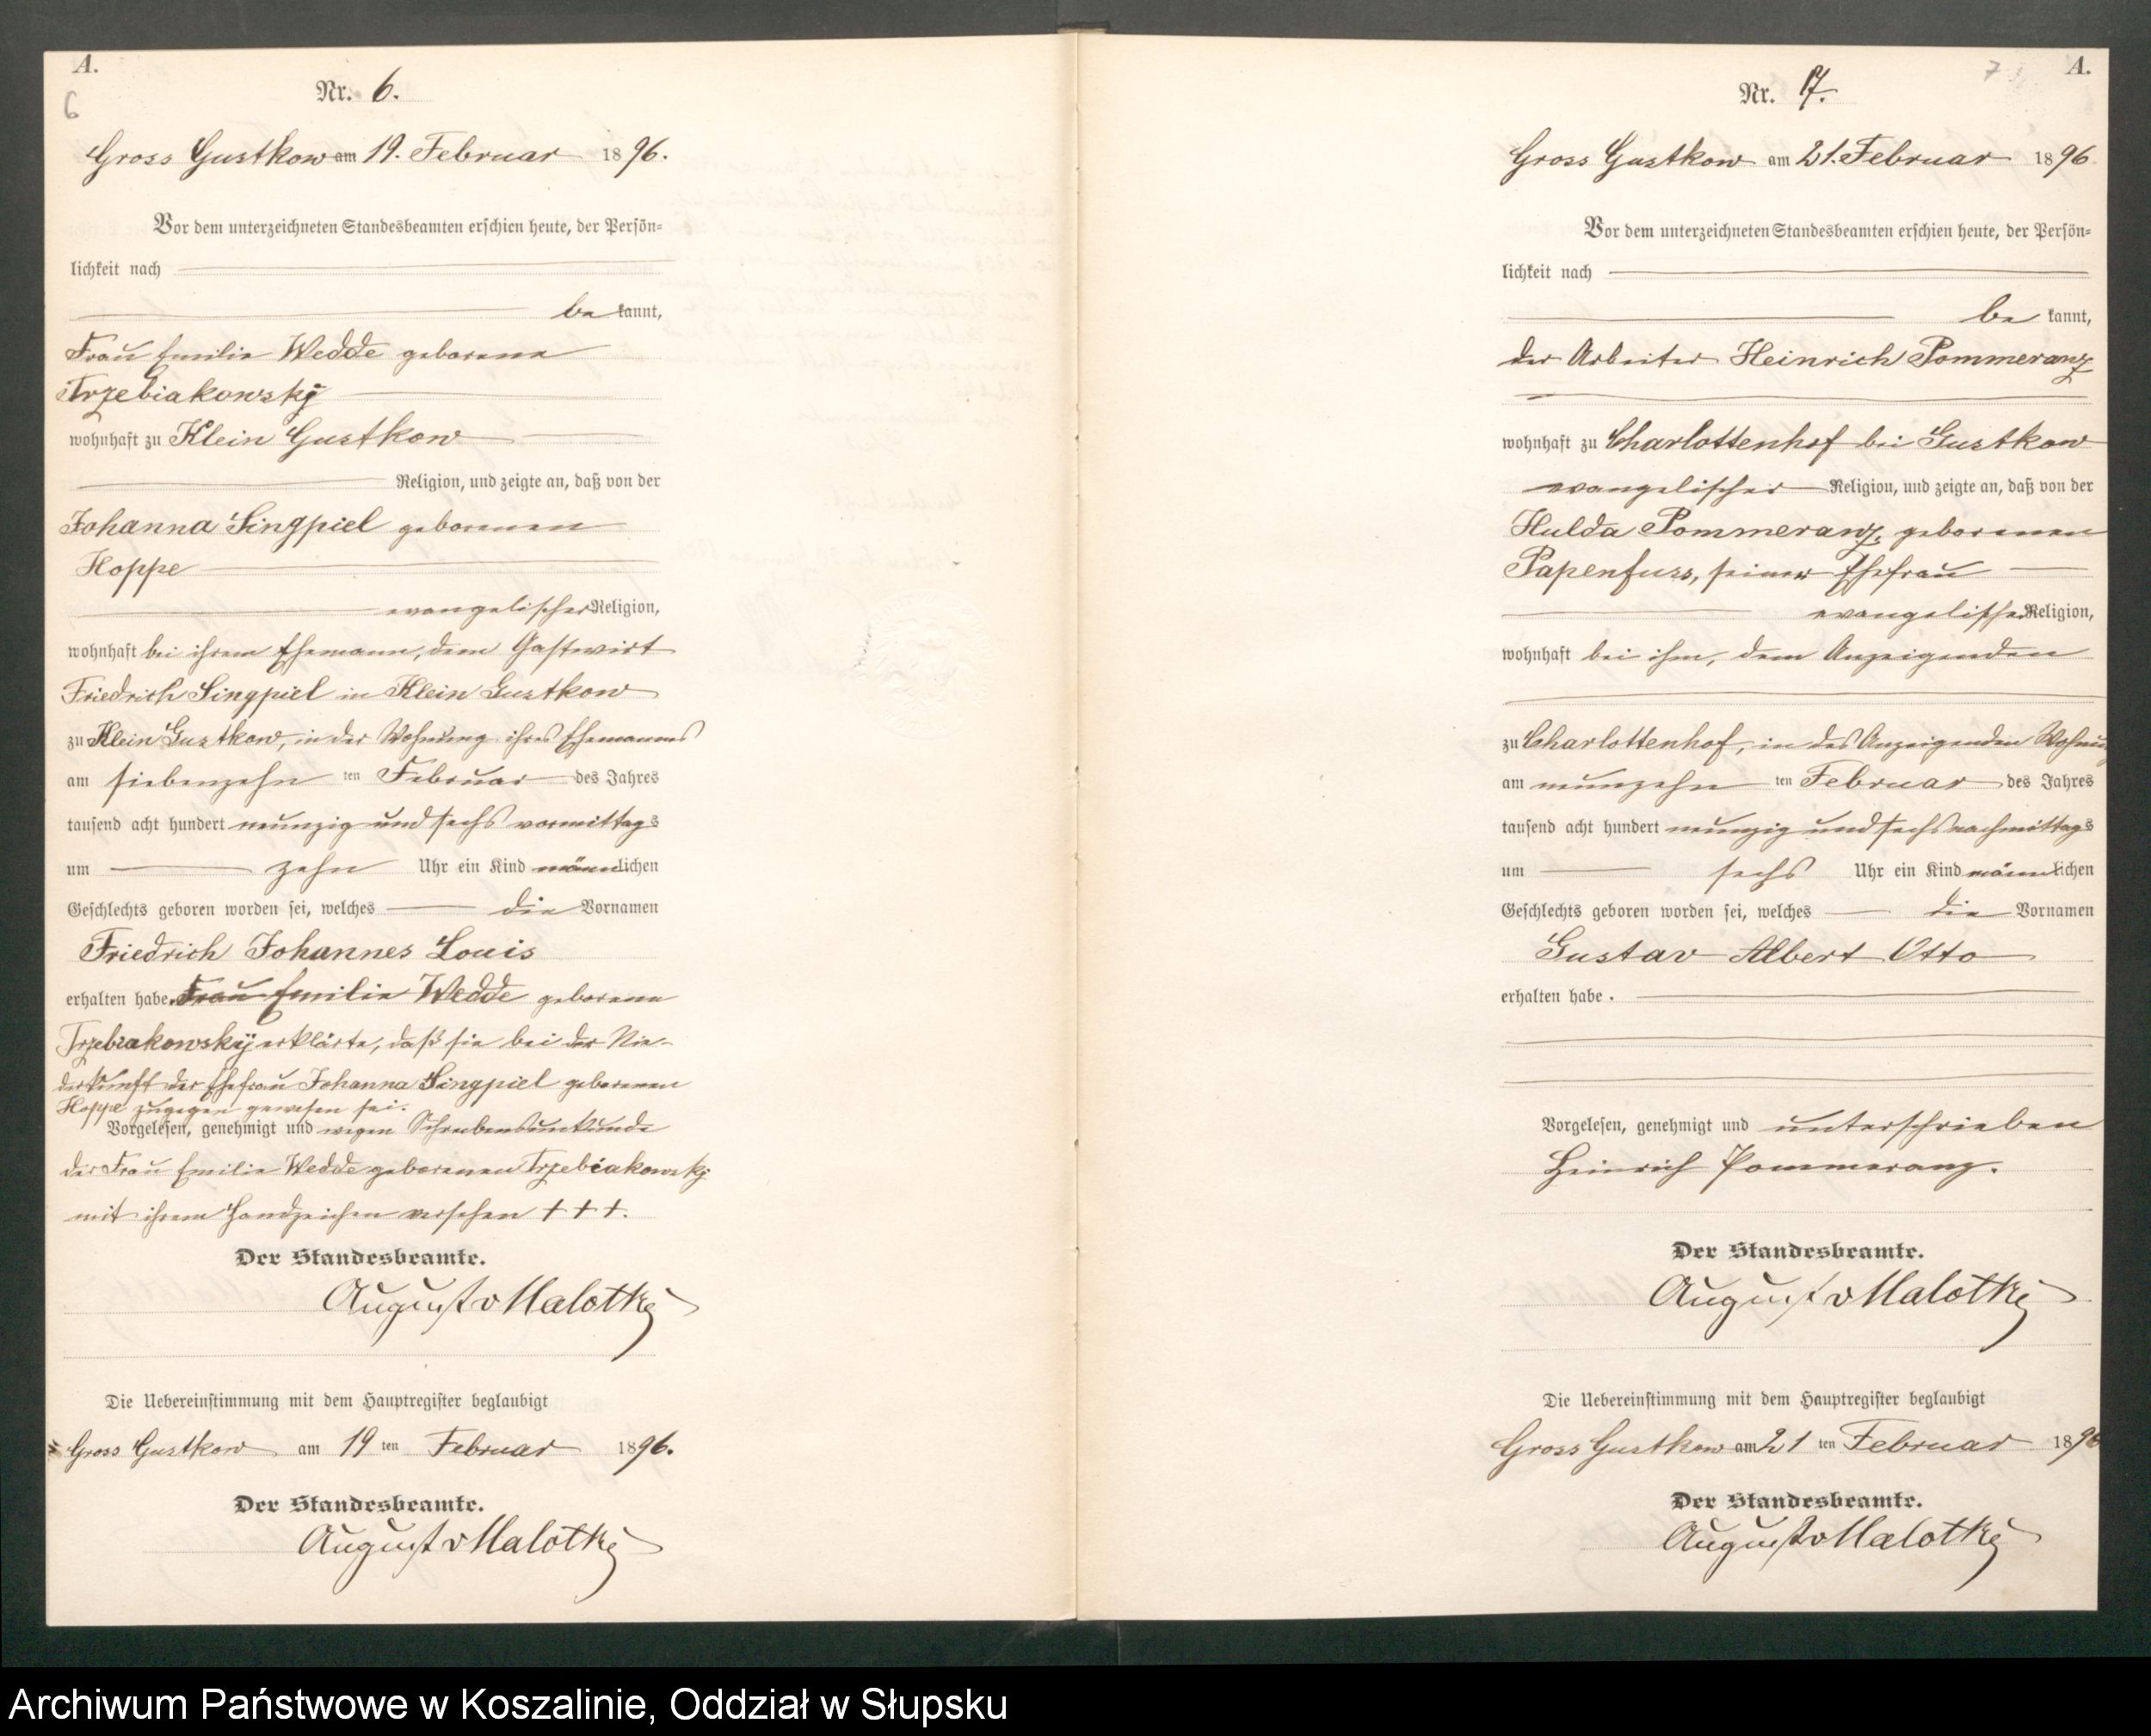 A.
6
Nr. 6.
Gross Gustkow am 19. Februar 1896.
Vor dem unterzeichneten Standesbeamten erschien heute, der Persön-
lichkeit nach
be kannt,
Frau Emilie Wedde geborene
Trzebiakowsky
wohnhaft zu Klein Gustkow
Religion, und zeigte an, daß von der
Johanna Singpiel geborenen
Hoppe
evangelischer Religion,
wohnhaft bei ihrem Ehemann, dem Gastwirt
Friedrich Singpiel in Klein Gustkow
zu Klein Gustkow, in der Wohnung ihres Ehemannes
am siebenzehn ten Februar des Jahres
tausend acht hundert neunzig und sechs vormittags
um zehn Uhr ein Kind männlichen
Geschlechts geboren worden sei, welches die Vornamen
Friedrich Johannes Louis
erhalten habe. Frau Emilie Wedde geborene
Trzebiakowsky erklärte, daß sie bei der Nie-
derkunft der Ehefrau Johanna Singpiel geborenen
Hoppe zugegen gewesen sei.
Vorgelesen, genehmigt und wegen Schreibensunkunde
der Frau Emilie Wedde geborenen Trzebiakowsky
mit ihrem Handzeichen versehen + + +.
Der Standesbeamte.
August v Malotky
Die Uebereinstimmung mit dem Hauptregister beglaubigt
Gross Gustkow am 19 ten Februar 1896.
Der Standesbeamte.
August v Malotky
7
A.
Nr. 7.
Gross Gustkow am 21. Februar 1896
Vor dem unterzeichneten Standesbeamten erschien heute, der Persön-
lichkeit nach
be kannt,
der Arbeiter Heinrich Pommeranz
wohnhaft zu Charlottenhof bei Gustkow
evangelischer Religion, und zeigte an, daß von der
Hulda Pommeranz, geborenen
Papenfuss, seiner Ehefrau
evangelischer Religion,
wohnhaft bei ihm, dem Anzeigenden
zu Charlottenhof, in des Anzeigenden Wohnung
am neunzehn ten Februar des Jahres
tausend acht hundert neunzig und sechs nachmittags
um sechs Uhr ein Kind männlichen
Geschlechts geboren worden sei, welches die Vornamen
Gustav Albert Otto
erhalten habe.
Vorgelesen, genehmigt und unterschrieben
Heinrich Pommeranz.
Der Standesbeamte.
August v Malotky
Die Uebereinstimmung mit dem Hauptregister beglaubigt
Gross Gustkow am 21 ten Februar 1896
Der Standesbeamte.
August v Malotky
Archiwum Państwowe w Koszalinie, Oddział w Słupsku